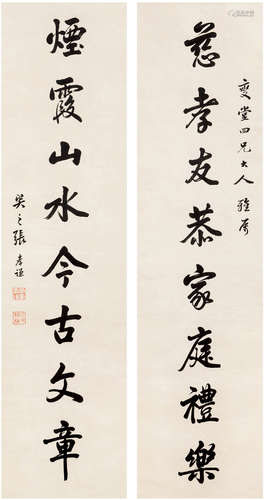 燮堂四兄大人雅屬
慈孝友恭家庭禮樂
煙霞山水今古文章
張孝謙